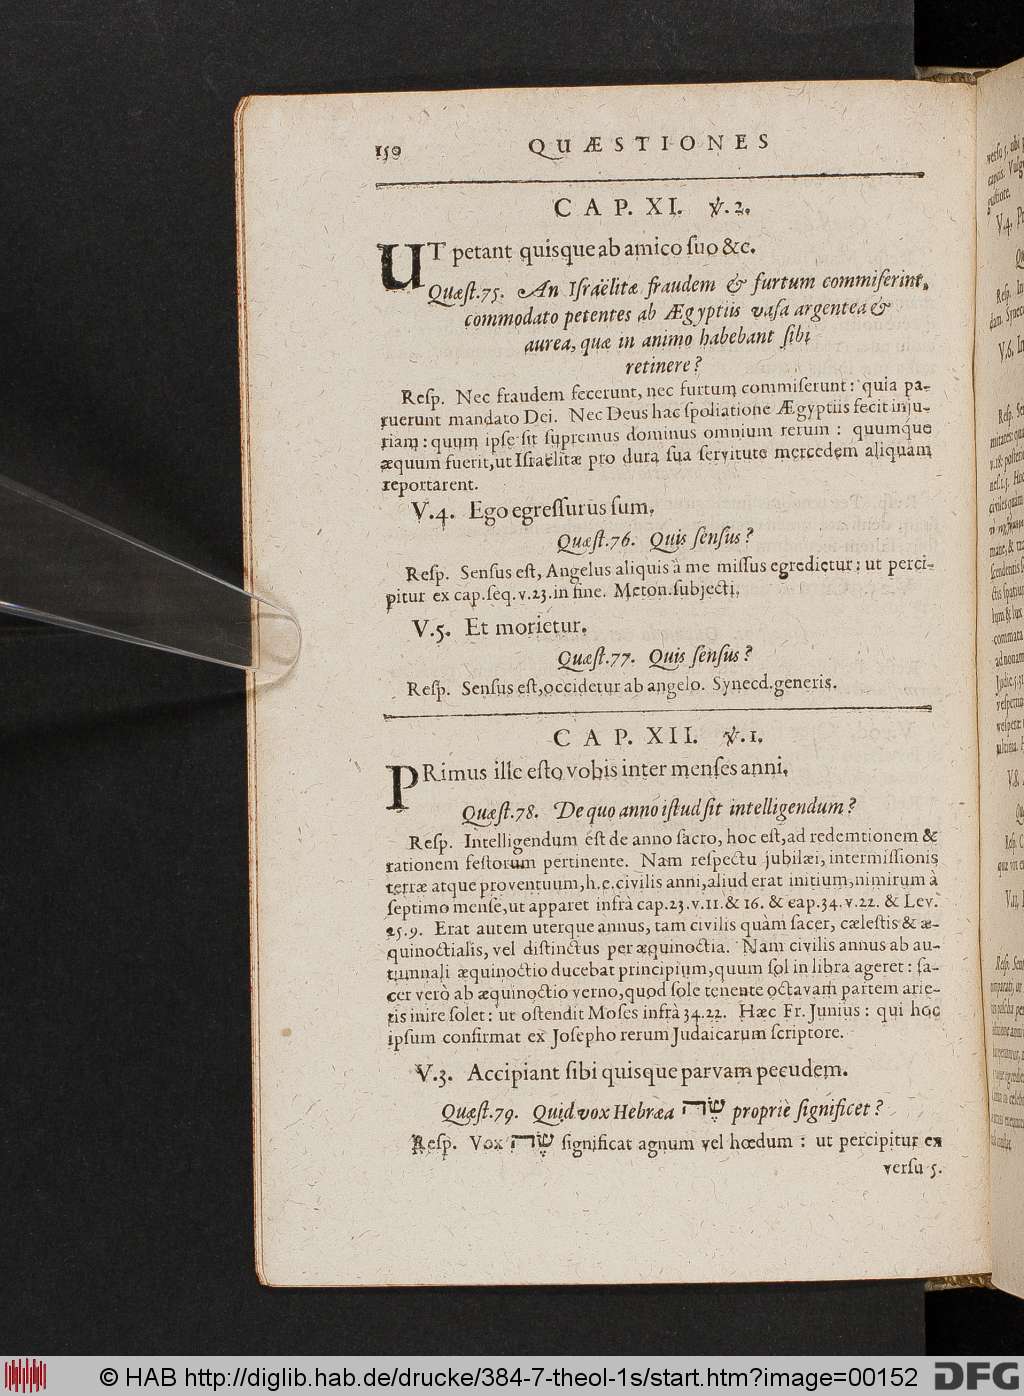 150 QUÆSTIONES
CAP. XI. ℣.2.
UT petant quisque ab amico ſuo &c.
Quæſt.75. An Iſraëlitæ fraudem & furtum commiſerint,
commodato petentes ab Ægyptiis vaſa argentea &
aurea, quæ in animo habebant ſibi
retinere?
Reſp. Nec fraudem fecerunt, nec furtum commiſerunt: quia pa-
ruerunt mandato Dei. Nec Deus hac ſpoliatione Ægyptiis fecit inju-
riam: quum ipſe ſit ſupremus dominus omnium rerum: quumque
æquum fuerit, ut Iſraëlitæ pro dura ſua ſervitute mercedem aliquam
reportarent.
V.4. Ego egreſſurus ſum.
Quæſt.76. Quis ſenſus?
Reſp. Senſus eſt, Angelus aliquis à me miſſus egredietur: ut perci-
pitur ex cap.ſeq.v.23.in fine. Meton.ſubjecti.
V.5. Et morietur.
Quæſt.77. Quis ſenſus?
Reſp. Senſus eſt, occidetur ab angelo. Synecd.generis.
CAP. XII. ℣.1.
PRimus ille eſto vobis inter menſes anni.
Quæſt.78. De quo anno iſtud ſit intelligendum?
Reſp. Intelligendum eſt de anno ſacro, hoc eſt, ad redemtionem &
rationem feſtorum pertinente. Nam reſpectu jubilæi, intermiſſionis
terræ atque proventuum, h.e. civilis anni, aliud erat initium, nimirum à
ſeptimo menſe, ut apparet infrà cap.23.v.11.& 16. & cap.34.v.22. & Lev.
25.9. Erat autem uterque annus, tam civilis quàm ſacer, cæleſtis & æ-
quinoctialis, vel diſtinctus per æquinoctia. Nam civilis annus ab au-
tumnali æquinoctio ducebat principium, quum ſol in libra ageret: ſa-
cer verò ab æquinoctio verno, quod ſole tenente octavam partem arie-
tis inire ſolet: ut oſtendit Moſes infrà 34.22. Hæc Fr. Junius: qui hoc
ipſum confirmat ex Joſepho rerum Judaicarum ſcriptore.
V.3. Accipiant ſibi quisque parvam pecudem.
Quæſt.79. Quid vox Hebræa שֶׂה propriè ſignificet?
Reſp. Vox שֶׂה ſignificat agnum vel hœdum: ut percipitur ex
verſu 5.
© HAB http://diglib.hab.de/drucke/384-7-theol-1s/start.htm?image=00152
DFG